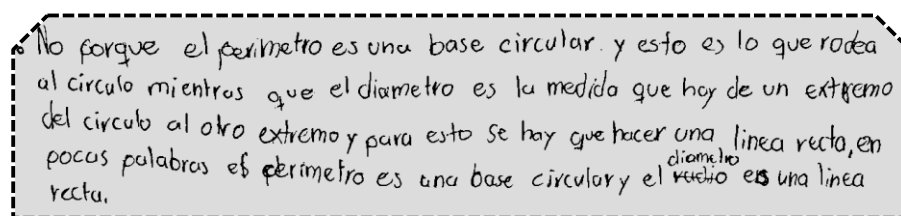 No porque el perimetro es una base circular. y esto es lo que rodea
al circulo mientras que el diametro es la medida que hay de un extremo
del circulo al otro extremo y para esto se hay que hacer una linea recta, en
pocas palabras es perimetro es una base circular y el diametro es una linea
recta.